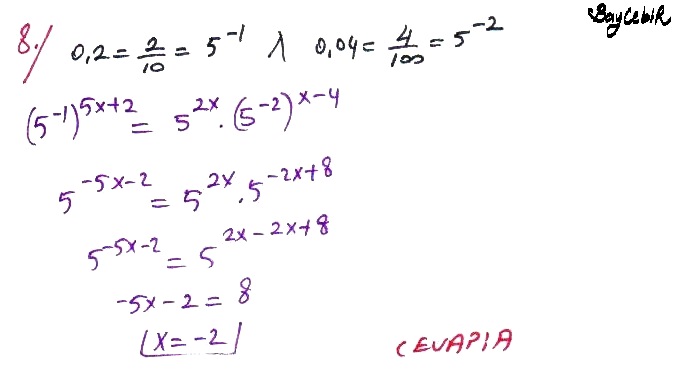 BayCebiR
8./ 0,2 = 2/10 = 5^-1 ∧ 0,04 = 4/100 = 5^-2
(5^-1)^5x+2 = 5^2x . (5^-2)^x-4
5^-5x-2 = 5^2x . 5^-2x+8
5^-5x-2 = 5^2x-2x+8
-5x-2 = 8
x = -2
CEVAP:A